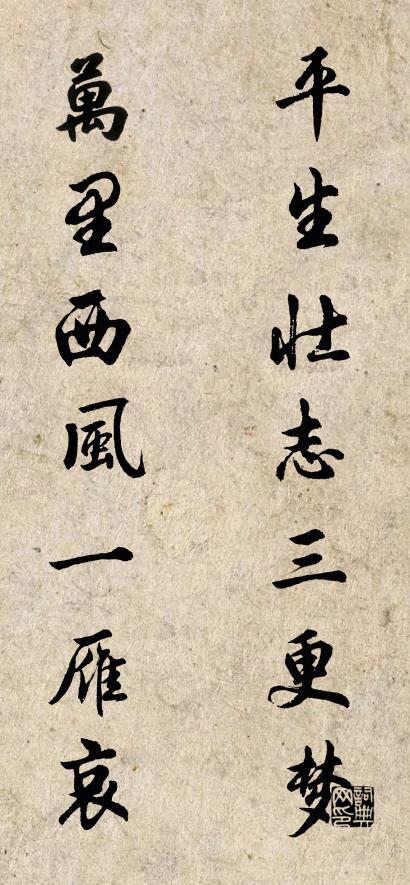 平生壮志三更梦
萬里西風一雁哀
詞典网印